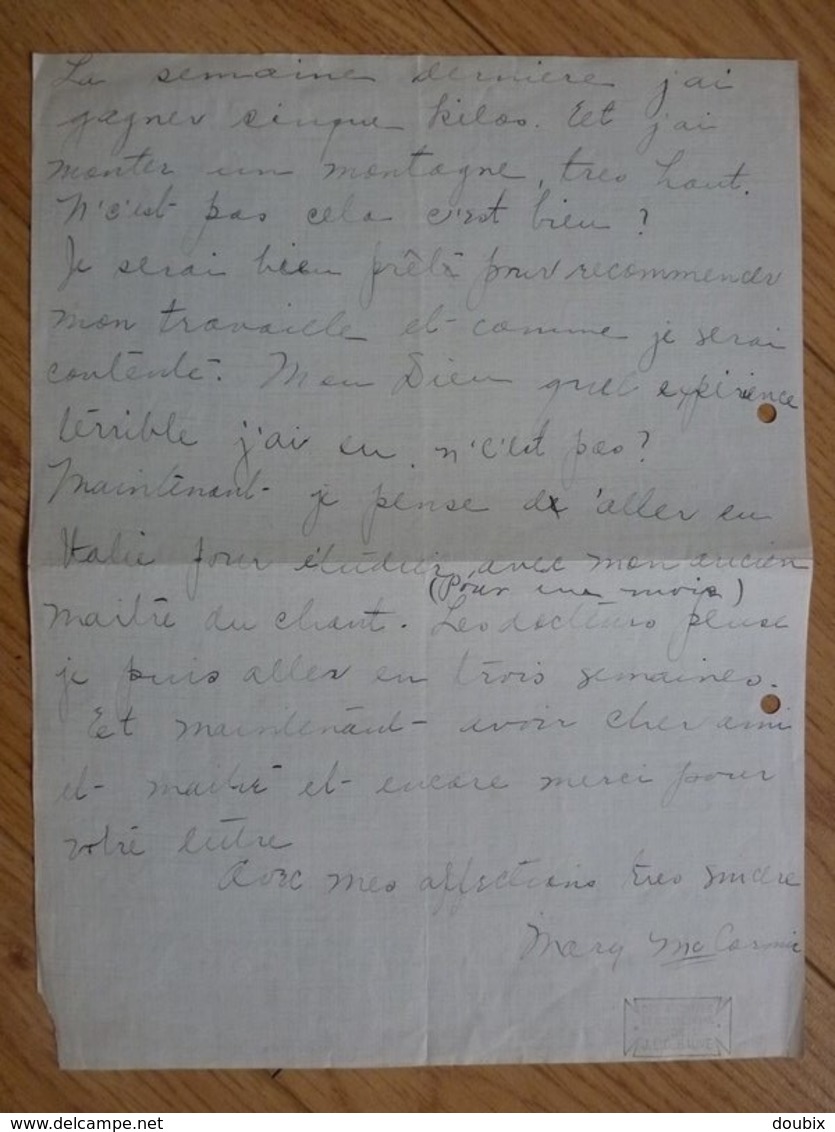 La semaine derniere j'ai
gagner sinque kilos. Et j'ai
monter un montagne, tres haut.
N'c'est pas cela c'est bien?
Je serai bien prêtè pour recommender
mon travaille et comme je serai
contente. Mon Dieu quel expérience
terrible j'ai eu, n'c'est pas?
Maintenant je pense d'aller en
Italie pour étudier avec mon ancien
(Pour une mois)
maitre du chant. Les docteurs pense
je puis aller en trois semaines.
Et maintenant avoir cher ami
et maitre et encore merci pour
votre lettre
Avec mes affections tres sincère
Mary McCormic
doubix